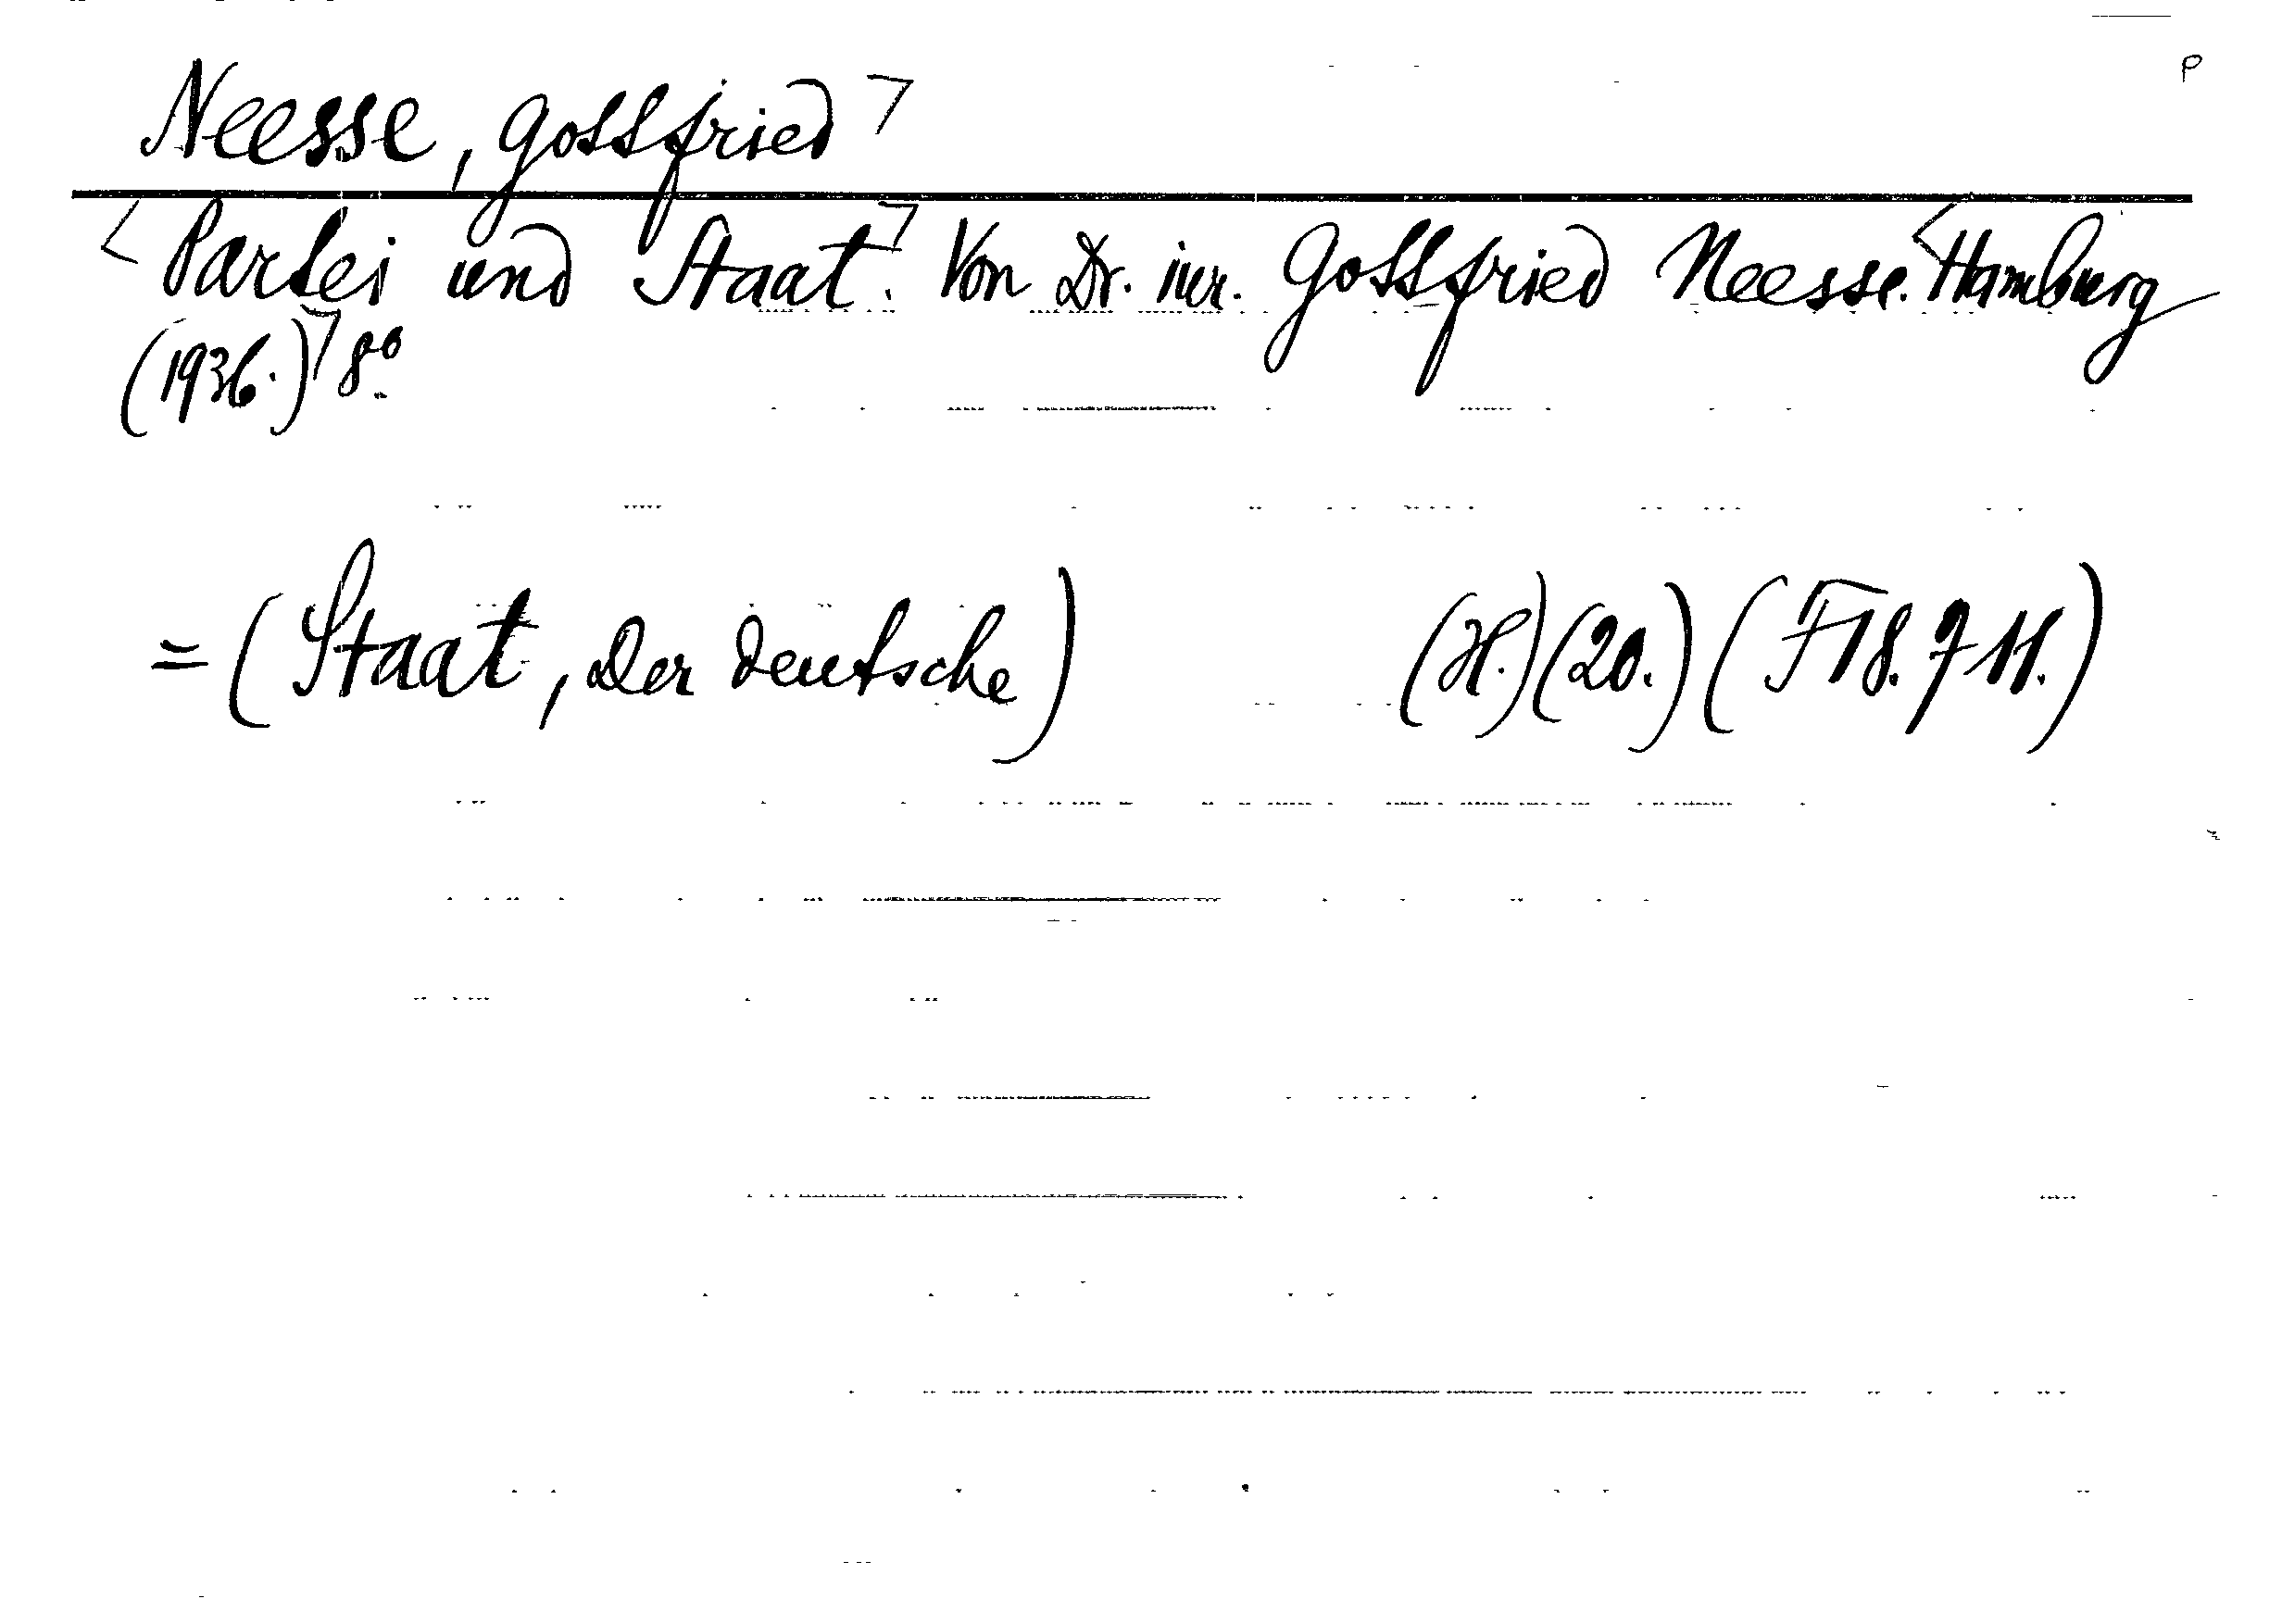 P
Neesse, Gottfried
Partei und Staat. Von Dr. iur. Gottfried Neesse. Hamburg
(1936.) 8º.
= (Staat, Der deutsche) (H.) (20.) (F18.711.)